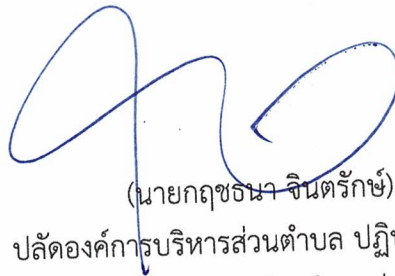 (นายกฤชธนา จินตรักษ์)
ปลัดองค์การบริหารส่วนตำบล